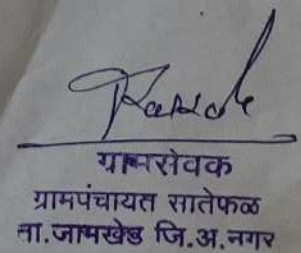 ग्रामसेवक
ग्रामपंचायत सातेफळ
ता.जामखेड जि.अ.नगर